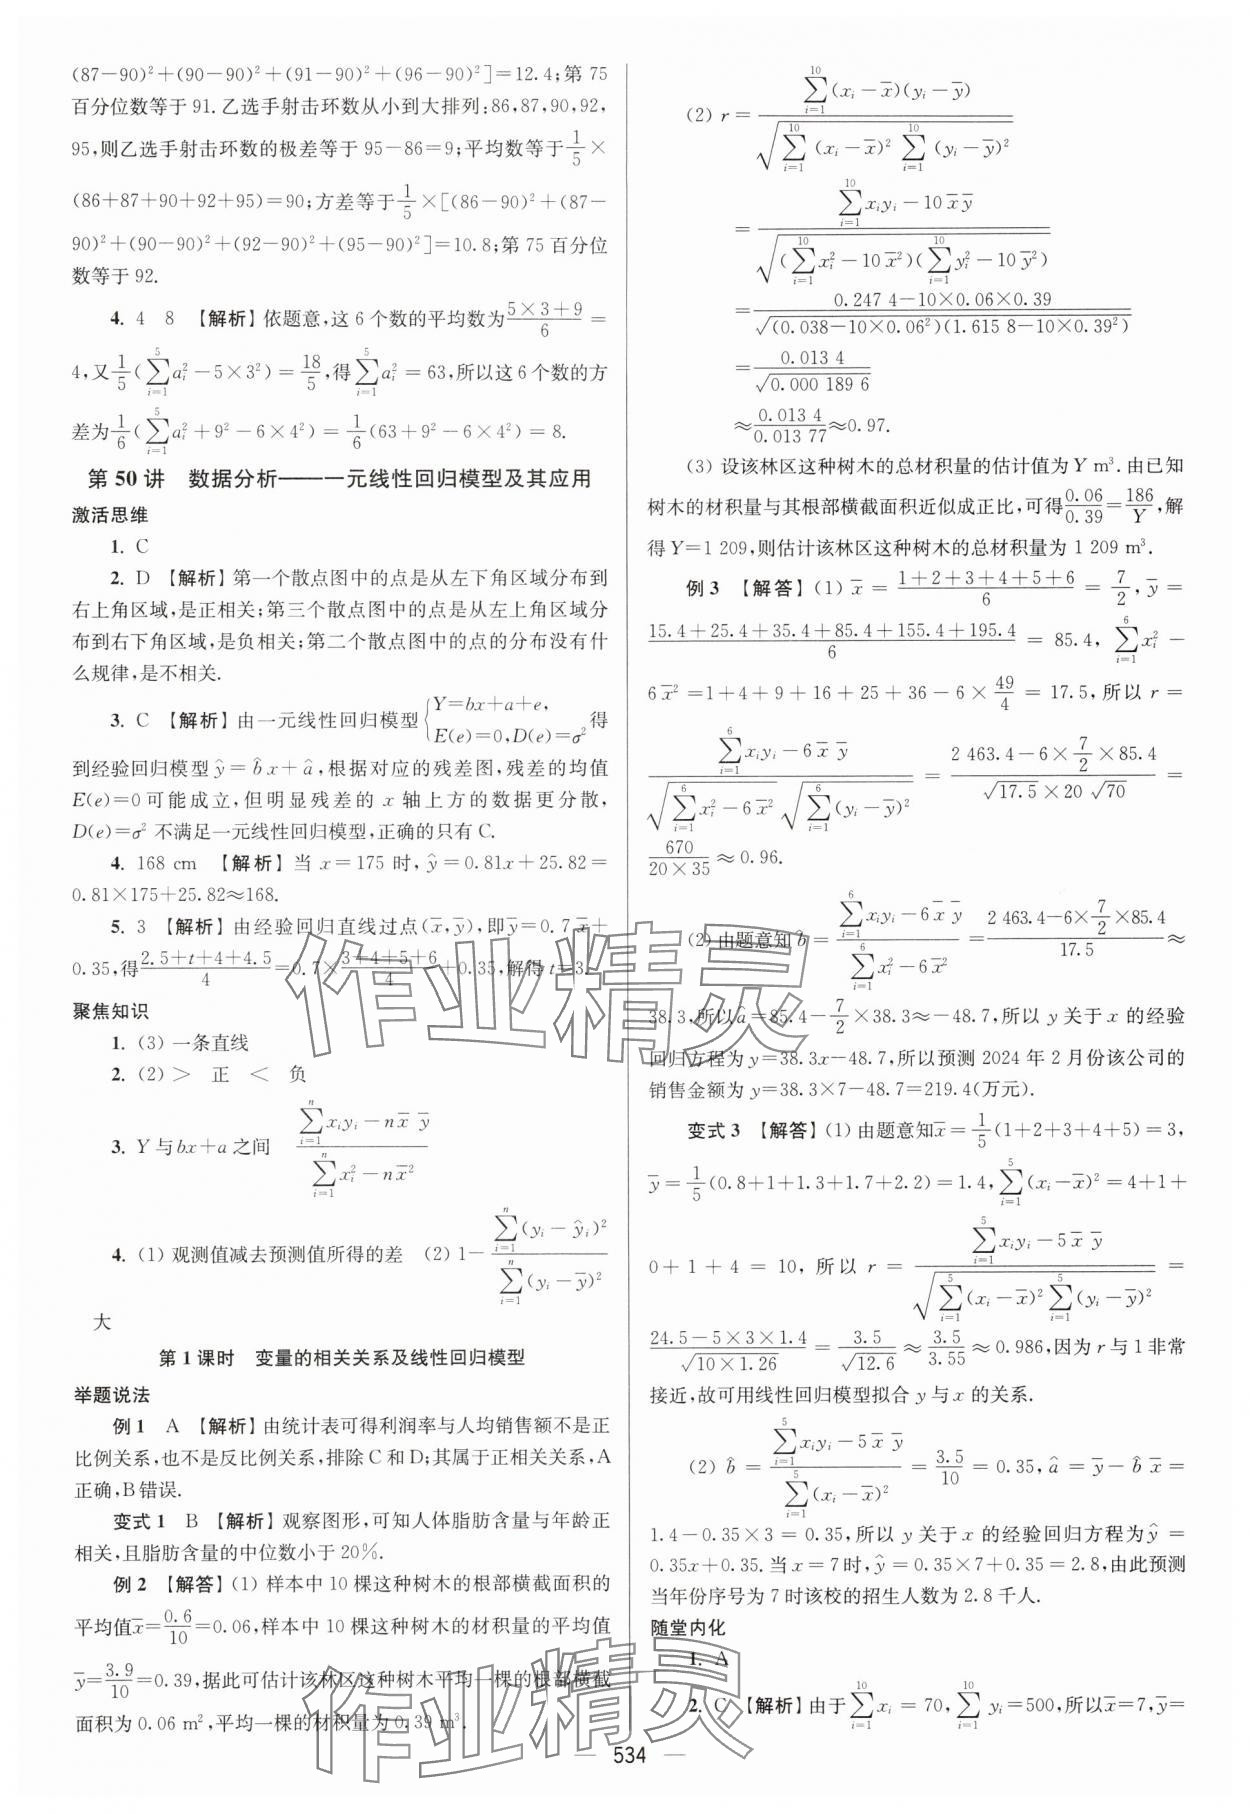 (87－90)²＋(90－90)²＋(91－90)²＋(96－90)²]＝12.4;第 75
百分位数等于 91.乙选手射击环数从小到大排列:86,87,90,92,
95,则乙选手射击环数的极差等于 95－86＝9;平均数等于1/5×
(86＋87＋90＋92＋95)＝90;方差等于1/5×[(86－90)²＋(87－
90)²＋(90－90)²＋(92－90)²＋(95－90)²]＝10.8;第 75 百分位
数等于 92.
4. 4 8 【解析】依题意,这 6 个数的平均数为(5×3＋9)/6＝
4,又1/5(∑_{i=1}^{5}a_i²－5×3²)＝18/5,得∑_{i=1}^{5}a_i²＝63,所以这 6 个数的方
差为1/6(∑_{i=1}^{5}a_i²＋9²－6×4²)＝1/6(63＋9²－6×4²)＝8.
第 50 讲 数据分析——一元线性回归模型及其应用
激活思维
1. C
2. D 【解析】第一个散点图中的点是从左下角区域分布到
右上角区域,是正相关;第三个散点图中的点是从左上角区域分
布到右下角区域,是负相关;第二个散点图中的点的分布没有什
么规律,是不相关.
3. C 【解析】由一元线性回归模型{Y＝bx＋a＋e, E(e)＝0,D(e)＝σ² 得
到经验回归模型 ŷ＝b̂x＋â,根据对应的残差图,残差的均值
E(e)＝0 可能成立,但明显残差的 x 轴上方的数据更分散,
D(e)＝σ² 不满足一元线性回归模型,正确的只有 C.
4. 168 cm 【解析】当 x＝175 时,ŷ＝0.81x＋25.82＝
0.81×175＋25.82≈168.
5. 3 【解析】由经验回归直线过点(x̄,ȳ),即ȳ＝0.7x̄＋
0.35,得(2.5＋t＋4＋4.5)/4＝0.7×(3＋4＋5＋6)/4＋0.35,解得 t＝3.
聚焦知识
1. (3) 一条直线
2. (2) ＞ 正 ＜ 负
3. Y 与 bx＋a 之间 (∑_{i=1}^{n}x_iy_i－nx̄ ȳ)/(∑_{i=1}^{n}x_i²－nx̄²)
4. (1) 观测值减去预测值所得的差 (2) 1－(∑_{i=1}^{n}(y_i－ŷ_i)²)/(∑_{i=1}^{n}(y_i－ȳ)²)
大
第 1 课时 变量的相关关系及线性回归模型
举题说法
例 1 A 【解析】由统计表可得利润率与人均销售额不是正
比例关系,也不是反比例关系,排除 C 和 D;其属于正相关关系,A
正确,B 错误.
变式 1 B 【解析】观察图形,可知人体脂肪含量与年龄正
相关,且脂肪含量的中位数小于 20%.
例 2 【解答】(1) 样本中 10 棵这种树木的根部横截面积的
平均值x̄＝0.6/10＝0.06,样本中 10 棵这种树木的材积量的平均值
ȳ＝3.9/10＝0.39,据此可估计该林区这种树木平均一棵的根部横截
面积为 0.06 m²,平均一棵的材积量为 0.39 m³.
(2) r＝(∑_{i=1}^{10}(x_i－x̄)(y_i－ȳ))/√(∑_{i=1}^{10}(x_i－x̄)² ∑_{i=1}^{10}(y_i－ȳ)²)
＝(∑_{i=1}^{10}x_iy_i－10 x̄ ȳ)/√((∑_{i=1}^{10}x_i²－10 x̄²)(∑_{i=1}^{10}y_i²－10 ȳ²))
＝(0.247 4－10×0.06×0.39)/√((0.038－10×0.06²)(1.615 8－10×0.39²))
＝0.013 4/√(0.000 189 6)
≈0.013 4/0.013 77≈0.97.
(3) 设该林区这种树木的总材积量的估计值为 Y m³.由已知
树木的材积量与其根部横截面积近似成正比,可得0.06/0.39＝186/Y,解
得 Y＝1 209,则估计该林区这种树木的总材积量为 1 209 m³.
例 3 【解答】(1) x̄＝(1＋2＋3＋4＋5＋6)/6＝7/2,ȳ＝
(15.4＋25.4＋35.4＋85.4＋155.4＋195.4)/6＝85.4,∑_{i=1}^{6}x_i²－
6 x̄²＝1＋4＋9＋16＋25＋36－6×49/4＝17.5,所以 r＝
(∑_{i=1}^{6}x_iy_i－6 x̄ ȳ)/(√(∑_{i=1}^{6}x_i²－6 x̄²) √(∑_{i=1}^{6}(y_i－ȳ)²))＝(2 463.4－6×7/2×85.4)/(√17.5×20 √70)＝
670/(20×35)≈0.96.
(2) 由题意知 b̂＝(∑_{i=1}^{6}x_iy_i－6 x̄ ȳ)/(∑_{i=1}^{6}x_i²－6 x̄²)＝(2 463.4－6×7/2×85.4)/17.5≈
38.3,所以â＝85.4－7/2×38.3≈－48.7,所以 y 关于 x 的经验
回归方程为 y＝38.3x－48.7,所以预测 2024 年 2 月份该公司的
销售金额为 y＝38.3×7－48.7＝219.4(万元).
变式 3 【解答】(1) 由题意知x̄＝1/5(1＋2＋3＋4＋5)＝3,
ȳ＝1/5(0.8＋1＋1.3＋1.7＋2.2)＝1.4,∑_{i=1}^{5}(x_i－x̄)²＝4＋1＋
0＋1＋4＝10,所以 r＝(∑_{i=1}^{5}x_iy_i－5 x̄ ȳ)/√(∑_{i=1}^{5}(x_i－x̄)²∑_{i=1}^{5}(y_i－ȳ)²)＝
(24.5－5×3×1.4)/√(10×1.26)＝3.5/√12.6≈3.5/3.55≈0.986,因为 r 与 1 非常
接近,故可用线性回归模型拟合 y 与 x 的关系.
(2) b̂＝(∑_{i=1}^{5}x_iy_i－5 x̄ ȳ)/(∑_{i=1}^{5}(x_i－x̄)²)＝3.5/10＝0.35,â＝ȳ－b̂ x̄＝
1.4－0.35×3＝0.35,所以 y 关于 x 的经验回归方程为ŷ＝
0.35x＋0.35.当 x＝7时,ŷ＝0.35×7＋0.35＝2.8,由此预测
当年份序号为 7 时该校的招生人数为 2.8 千人.
随堂内化
1. A
2. C 【解析】由于∑_{i=1}^{10}x_i＝70,∑_{i=1}^{10}y_i＝500,所以x̄＝7,ȳ＝
— 534 —
作业精灵
作业精灵